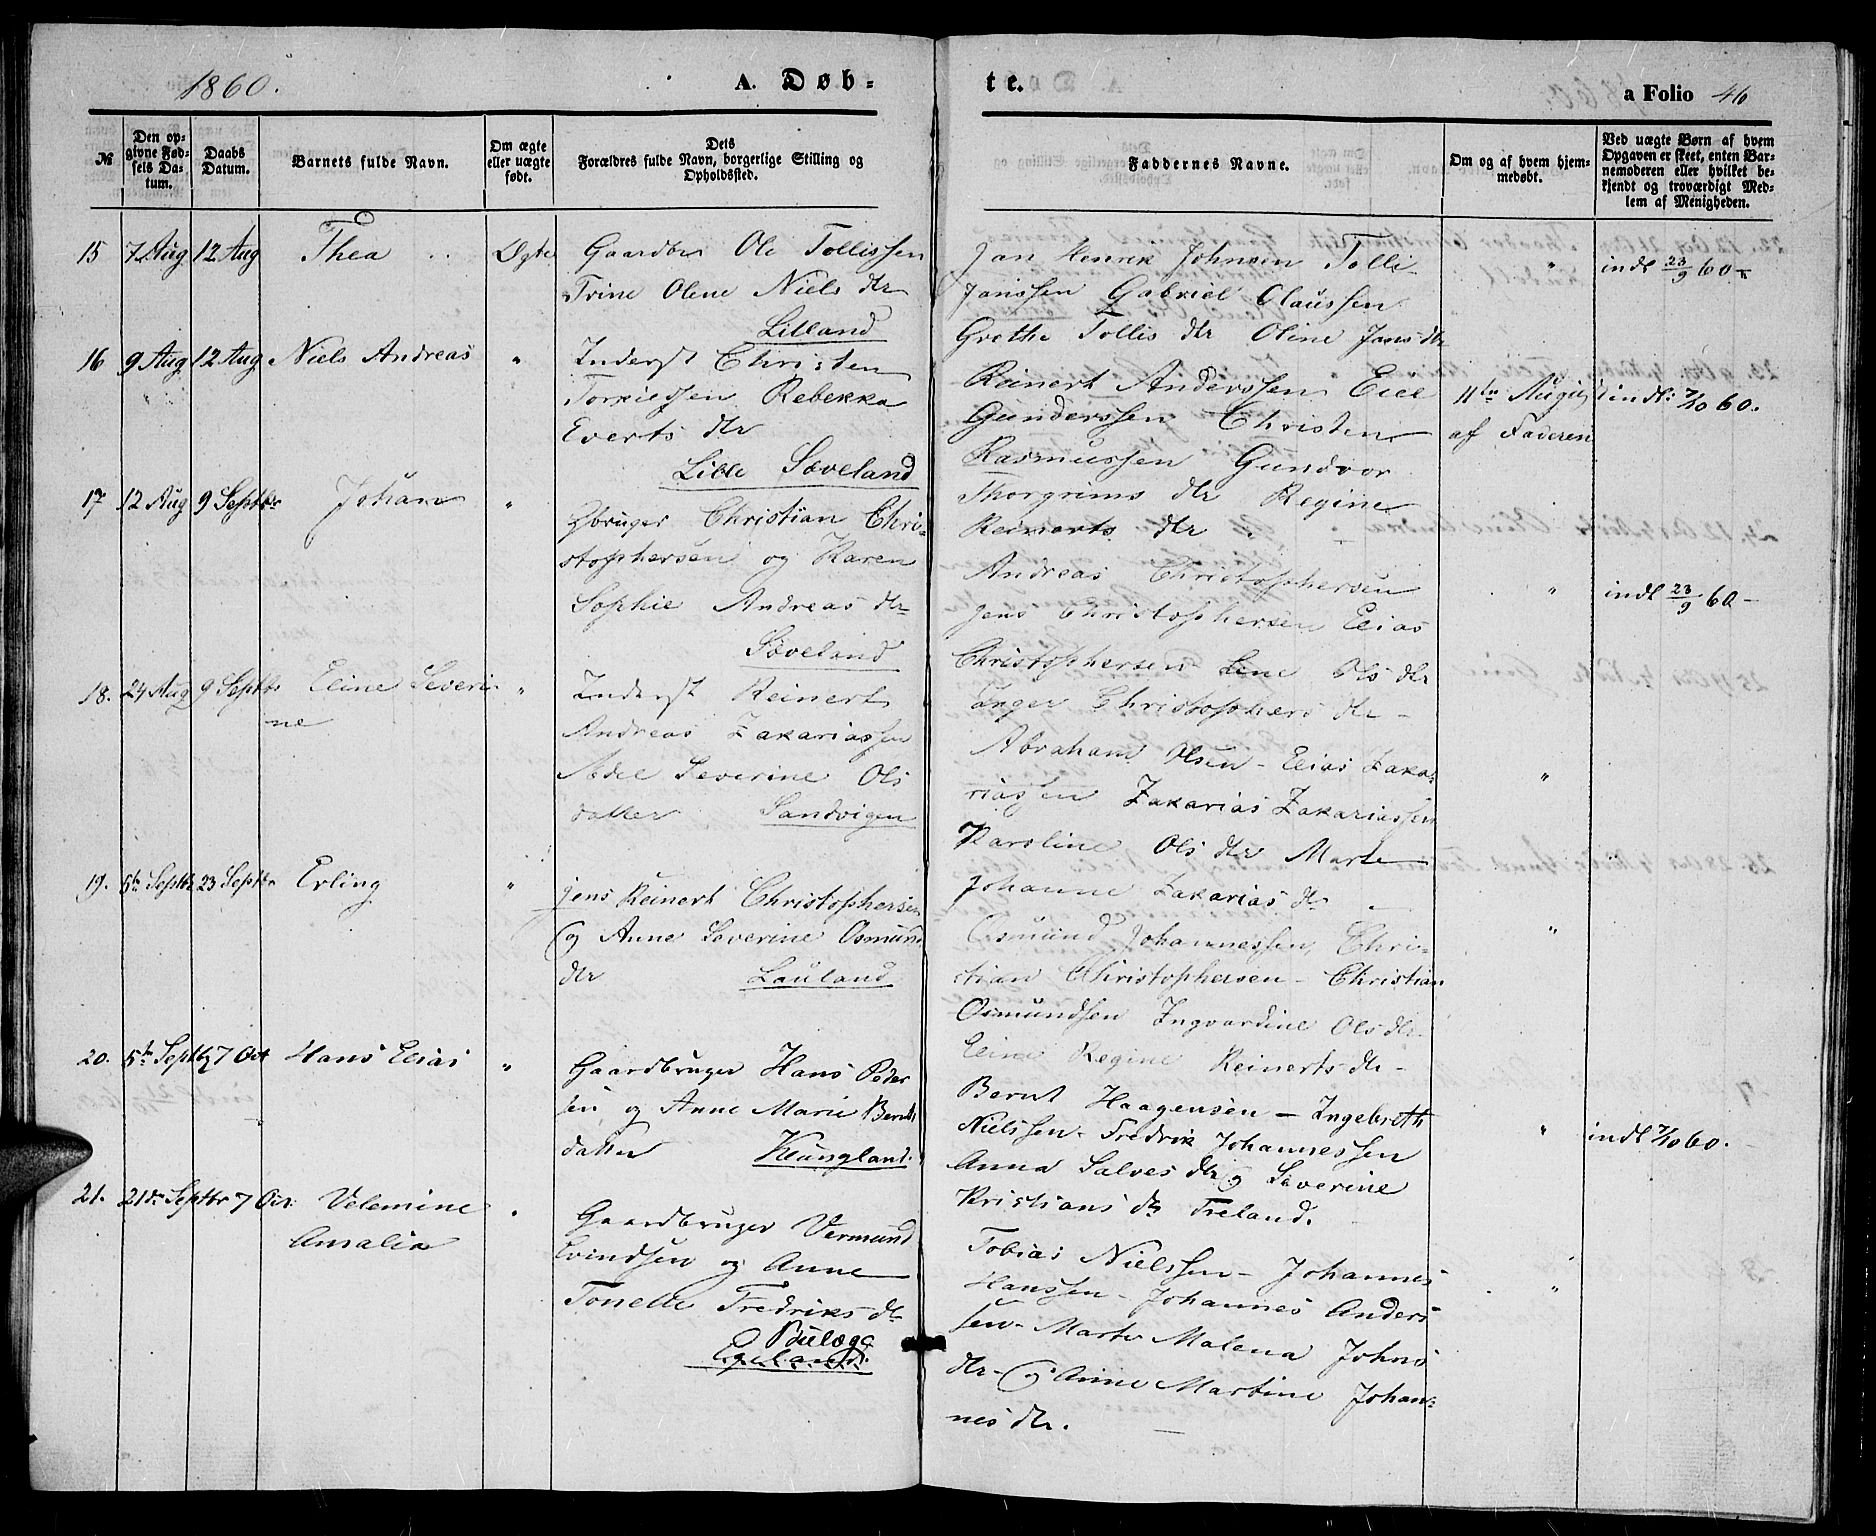 1860.
A. Døb-
te.
a Folio 46
№
Den op-
givne Fød-
sels Da-
tum.
Daabs
Datum.
Barnets fulde Navn.
Om ægte
eller uægte
født.
Dets
Forældres fulde Navn, borgerlige Stilling og
Opholdssted.
Faddernes Navne.
Om og af hvem hjem-
medøbt.
Ved uægte Børn af hvem
Opgaven er skeet, enten Bar-
nemoderen eller hvilket be-
kjendt og troværdigt Med-
lem af Menigheden.
15 7 Aug 12 Aug Thea Ægte
Gaardbr Ole Tollissen
Trine Olene Niels dtr
Lilland
Jan Henrik Johnsen Tolli
Janssen Gabriel Claussen
Grethe Tollis dtr Oline Jans dtr
"
indt 23/9 60 -
16 9 Aug 12 Aug Niels Andreas "
Inderst Christen
Torkildsen Rebekka
Everts dtr
Lille Sæveland
Reinert Anderssen Eile
Gunderssen Christen
Rasmussen Gundvor
Thorgrims dtr Regine
Reinerts dtr
11te August
af Faderen
indt: 7/10 60.
17 12 Aug 9 Septbr Johan "
Gbruger Christian Chri-
stophersen og Karen
Sophie Andreas dtr
Sæveland
Andreas Christophersen
Jens Christophersen Elias
Christophersen Lene Ols dtr
Inger Christophers dtr -
"
indt 23/9 60 -
18. 24 Aug 9 Septbr Eline Severi-
ne "
Inderst Reinert
Andreas Zakariassen
Adel Severine Ols
datter Sandvigen
Abraham Olsen - Elias Zaka-
riassen Zakarias Zakariassen
Karoline Ols dtr Marte
Johanne Zakarias dtr -
"
19. 5te Septbr 23 Septbr Erling "
Jens Reinert Christophersen
og Anne Severine Osmunds
dtr Lauland
Osmund Johannessen, Chri-
stian Christophersen - Christian
Osmundsen Ingvardine Ols dtr
Eline Regine Reinerts dtr -
"
20. 5te Septbr 7 Oct Hans Elias "
Gaardbruger Hans Peder
sen og Anne Marie Bernts
datter Klungland.
Bernt Haagensen - Ingebreth
Nielssen - Fredrik Johannessen
Anna Salves dtr og Severine
Kristians dtr Freland.
"
indt 7/10 60. -
21. 21de Septbr 7 Oct. Velemine
Amalia "
Gaardbruger Vermund
Evindsen og Anne
Tonette Fredriks dtr
Egeland.
Tobias Nielssen - Johannes
Hanssen - Johannes Anders
sen - Marte Malena Johns
dtr - og Anne Martine Johan-
nes dtr. -
"